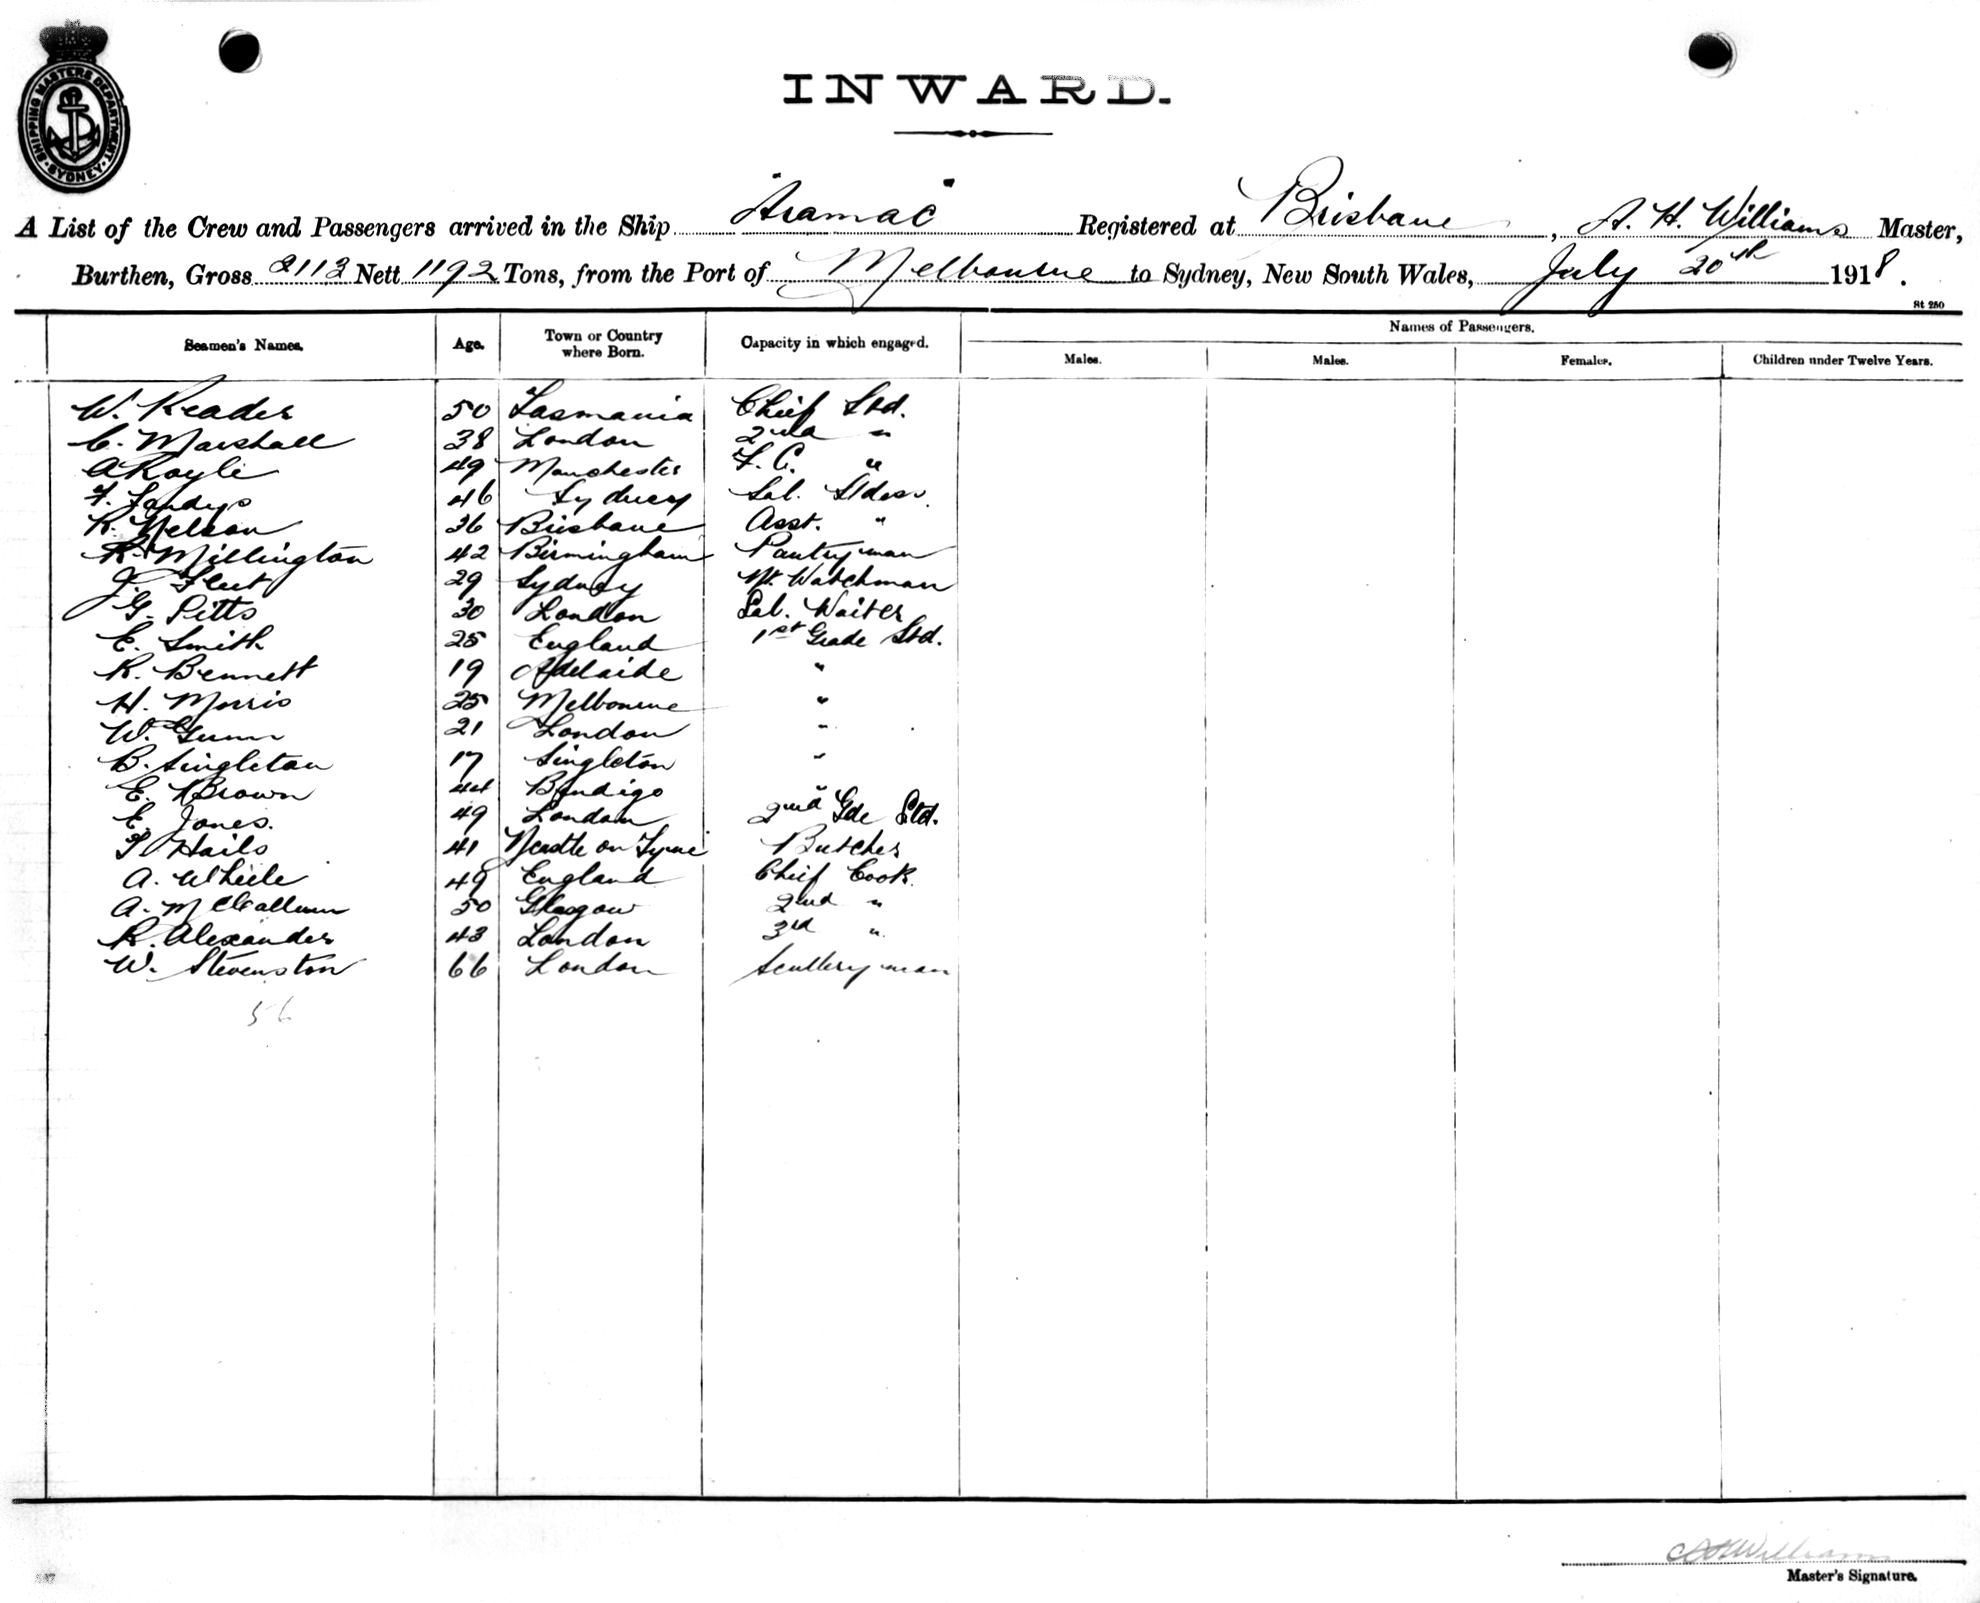 SHIPPING MASTERS DEPARTMENT · SYDNEY ·
INWARD.
A List of the Crew and Passengers arrived in the Ship "Aramac" Registered at Brisbane, A. H. Williams Master,
Burthen, Gross 2113 Nett 1192 Tons, from the Port of Melbourne to Sydney, New South Wales, July 20th 1918.
St 250
Seamen's Names. Age. Town or Country where Born. Capacity in which engaged. Names of Passengers.
Males. Males. Females. Children under Twelve Years.
W. Reader 50 Tasmania Chief Std.
C. Marshall 38 London 2nd "
A Royle 49 Manchester F. C. "
F. Sandys 46 Sydney Sal. Stdess.
R. Nelson 36 Brisbane Asst. "
R. Millington 42 Birmingham Pantryman
J. Fleet 29 Sydney Nt. Watchman
G. Pitts 30 London Sal. Waiter
E. Smith 25 England 1st Grade Std.
R. Bennett 19 Adelaide "
H. Morris 25 Melbourne "
W. Gunn 21 London "
B. Singleton 17 Singleton "
E. Brown 44 Bendigo "
E. Jones. 49 London 2nd Gde Std.
T Hails 41 Ncastle on Tyne Butcher
A. Wheele 49 England Chief Cook.
A. McCallum 50 Glasgow 2nd "
R. Alexander 43 London 3rd "
W. Stevenston 66 London Sculleryman
56
A H Williams
Master's Signature.